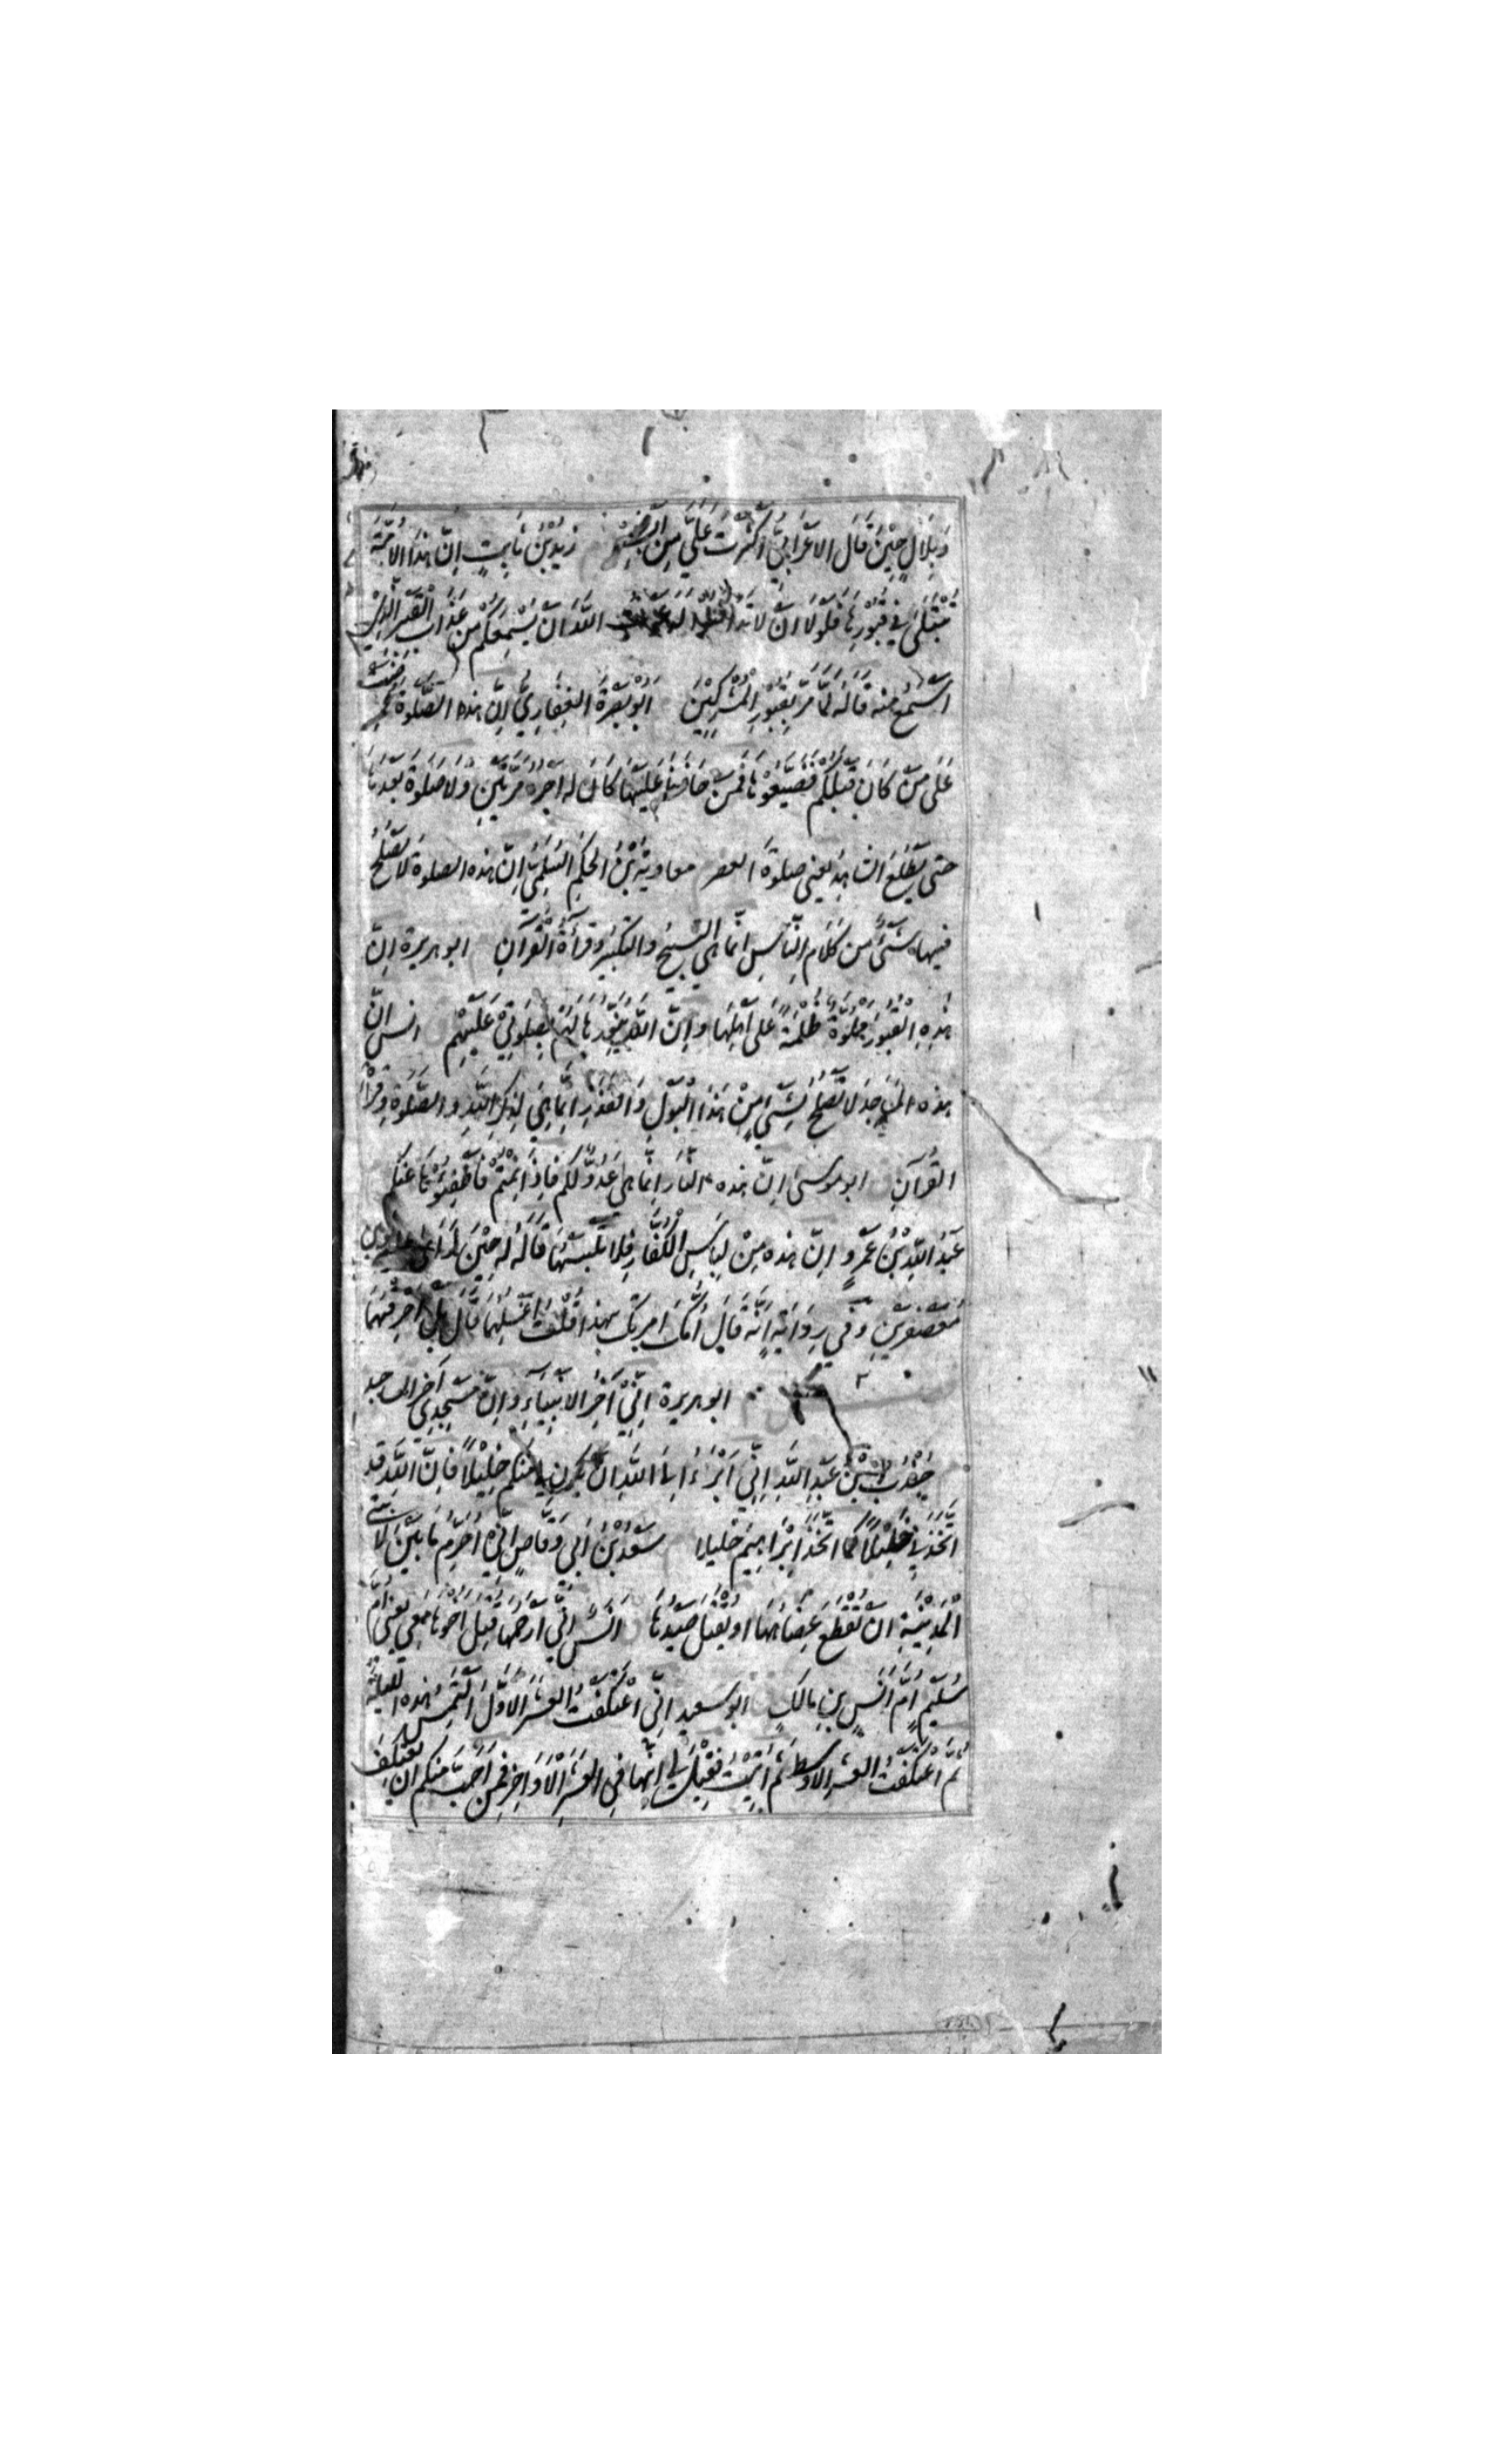 وَبِلَالٍ حِيْنَ قَالَ الاَعْرَابِيُّ اَكْثَرْتَ عَلَيَّ مِنْ اَبْشِرْ زَيْدُ بْنُ ثَابِتٍ اِنَّ هٰذَا الاُمَّةَ
تُبْتَلٰى فِي قُبُوْرِهَا فَلَوْلَا اَنْ لَا تَدَافَنُوْا لَدَعَوْتُ اللّٰهَ اَنْ يُسْمِعَكُمْ مِنْ عَذَابِ الْقَبْرِ الَّذِيْ
اَسْمَعُ مِنْهُ قَالَهُ لَمَّا مَرَّ بِقُبُوْرِ الْمُشْرِكِيْنَ اَبُو بَصْرَةَ الْغِفَارِيُّ اِنَّ هٰذِهِ الصَّلٰوةَ عُرِضَتْ
عَلٰى مَنْ كَانَ قَبْلَكُمْ فَضَيَّعُوْهَا فَمَنْ حَافَظَ عَلَيْهَا كَانَ لَهُ اَجْرُهُ مَرَّتَيْنِ وَلَا صَلٰوةَ بَعْدَهَا
حتى يَطْلُعَ الشَّاهِدُ يعنى صلوةَ العصر معاويةُ بْنُ الحكَمِ السُّلَمِيُّ اِنَّ هذه الصلوةَ لَا يَصْلُحُ
فيها شَيْءٌ من كَلَامِ النَّاسِ انَّمَا هِيَ التَّسْبِيْحُ والتكبيرُ وقِرَاءَةُ الْقُرْآنِ ابو هريرة اِنَّ
هٰذِهِ الْقُبُوْرَ مَمْلُوَّةٌ ظُلْمَةً عَلٰى اَهْلِهَا وَاِنَّ اللّٰهَ يُنَوِّرُهَا لَهُمْ بِصَلٰوتِيْ عَلَيْهِمْ انس اِنَّ
هذه المَسَاجِدَ لَا تَصْلُحُ لِشَيْءٍ مِنْ هٰذَا الْبَوْلِ وَالقَذَرِ اِنَّمَا هِيَ لِذِكْرِ اللّٰهِ وَالصَّلٰوةِ وَقِرَاءَةِ
القُرْآنِ ابو موسى اِنَّ هذه النارَ اِنَّمَا هِيَ عَدُوٌّ لَكُمْ فَاِذَا نِمْتُمْ فَاَطْفِئُوْهَا عَنْكُمْ
عَبْدُ اللّٰهِ بْنُ عَمْرٍو اِنَّ هذه مِنْ لِبَاسِ الْكُفَّارِ فلا تَلْبَسْهَا قَالَهُ لَه حِيْنَ رَاٰى عليه ثوبين
مُعَصْفَرَيْنِ وَفِي رِوَايَةٍ اَنَّهُ قَالَ اُمُّكَ امرتْكَ بهذا قُلْتُ اَغْسِلُهُمَا قَالَ بَلْ اَحْرِقْهُمَا
ابو هريرة اِنِّيْ آخِرُ الانْبِيَآءِ وَاِنَّ مَسْجِدِيْ آخِرُ المساجد
جُنْدُبُ بْنُ عَبْدِ اللّٰهِ اِنِّيْ اَبْرَءُ اِلَى اللّٰهِ اَنْ يَكُوْنَ لِيْ مِنْكُمْ خَلِيْلٌ فَاِنَّ اللّٰهَ قَدِ
اتَّخَذَنِيْ خَلِيْلًا كَمَا اتَّخَذَ اِبْرَاهِيْمَ خَلِيْلًا سَعْدُ بْنُ اَبِيْ وَقَّاصٍ اِنِّيْ اُحَرِّمُ مَا بَيْنَ لَابَتَيِ
الْمَدِيْنَةِ اَنْ تُقْطَعَ عِضَاهُهَا او يُقْتَلَ صَيْدُهَا اَنَسٌ اِنِّيْ اَرْحَمُهَا قُتِلَ اَخُوْهَا مَعِيْ يَعْنِي اُمَّ
سُلَيْمٍ اُمَّ اَنَسِ بْنِ مَالِكٍ ابو سعيدٍ اِنِّي اعْتَكَفْتُ العَشْرَ الاَوَّلَ اَلْتَمِسُ هذه الليلةَ
ثُمَّ اعْتَكَفْتُ العشرَ الاَوْسَطَ ثُمَّ اُتِيْتُ فَقِيْلَ لِي اِنَّهَا فِي العَشْرِ الْاَوَاخِرِ فَمَنْ اَحَبَّ مِنْكُمْ اَنْ يَعْتَكِفَ